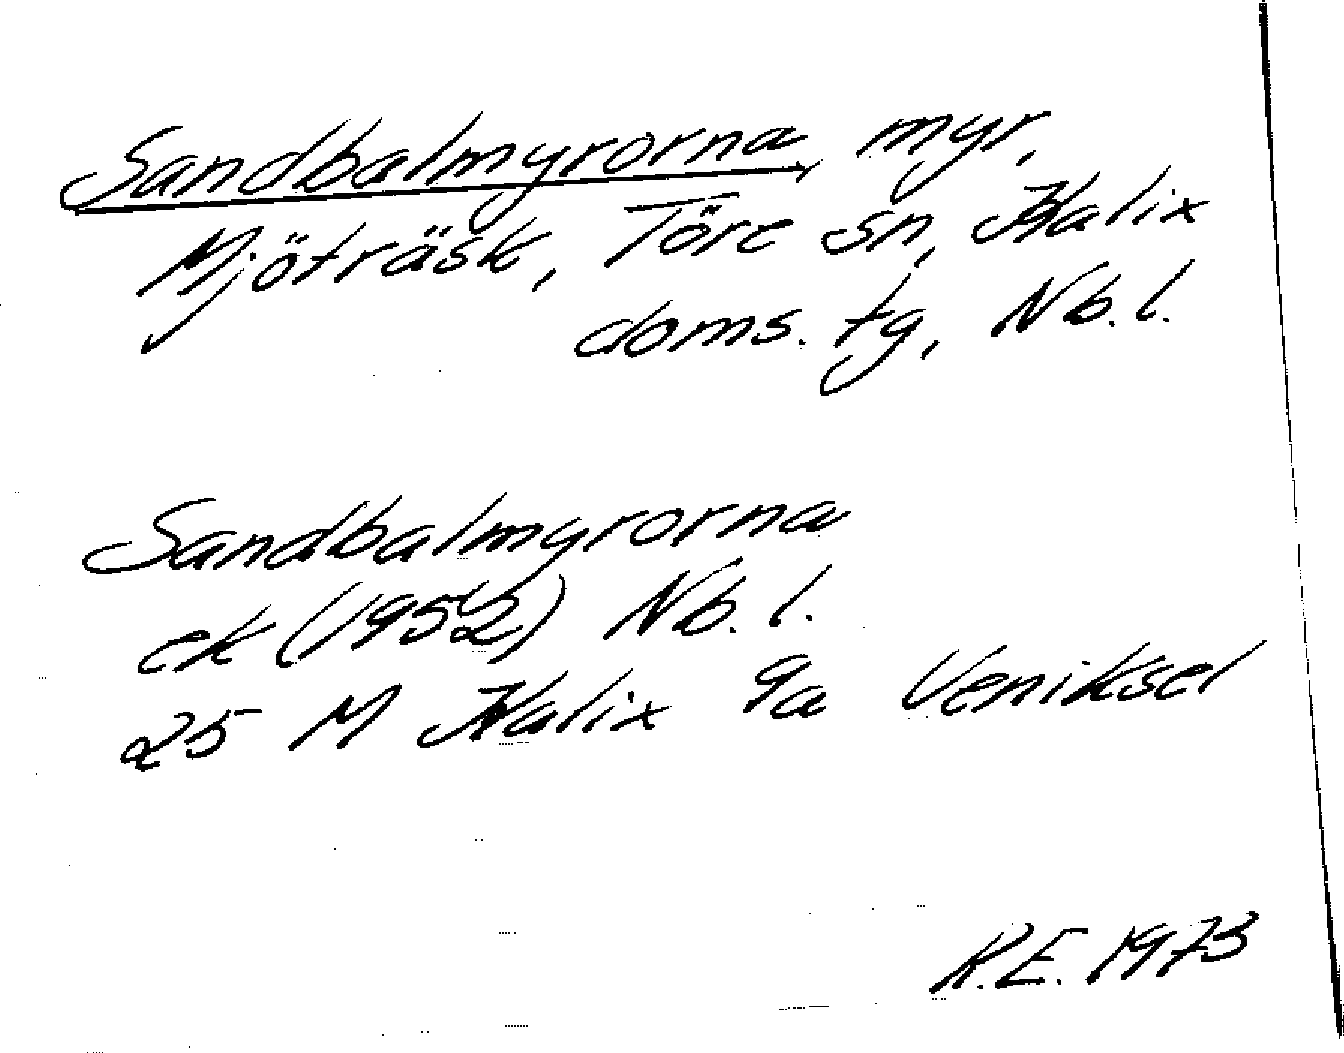 Sandbalmyrorna, myr,
Mjöträsk, Töre sn, Kalix
doms. tg, Nb. l.
Sandbalmyrorna
ek (1952) Nb. l.
25 M Kalix 9a Veniksel
R.E. 1973